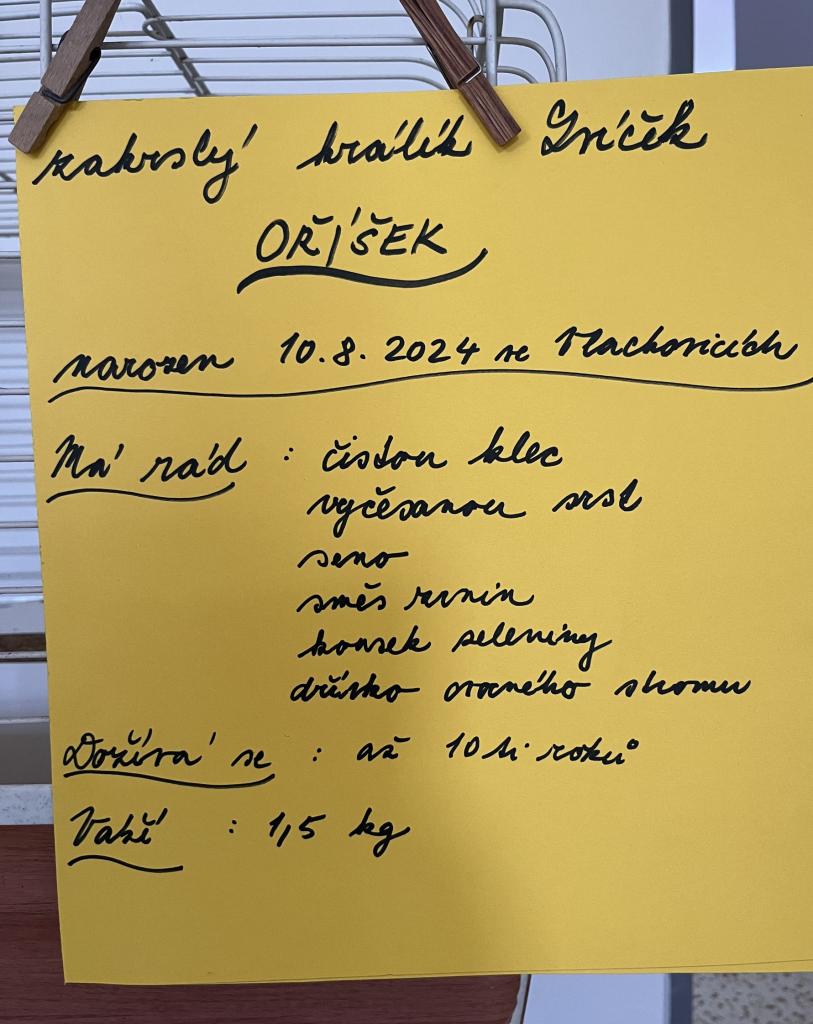 zakrslý králík Lvíček
OŘÍŠEK
narozen 10.8. 2024 ve Vlachovicích
Má rád : čistou klec
vyčesanou srst
seno
směs zrnin
kousek zeleniny
dřívko ovocného stromu
Dožívá se : až 10ti roků
Váží : 1,5 kg